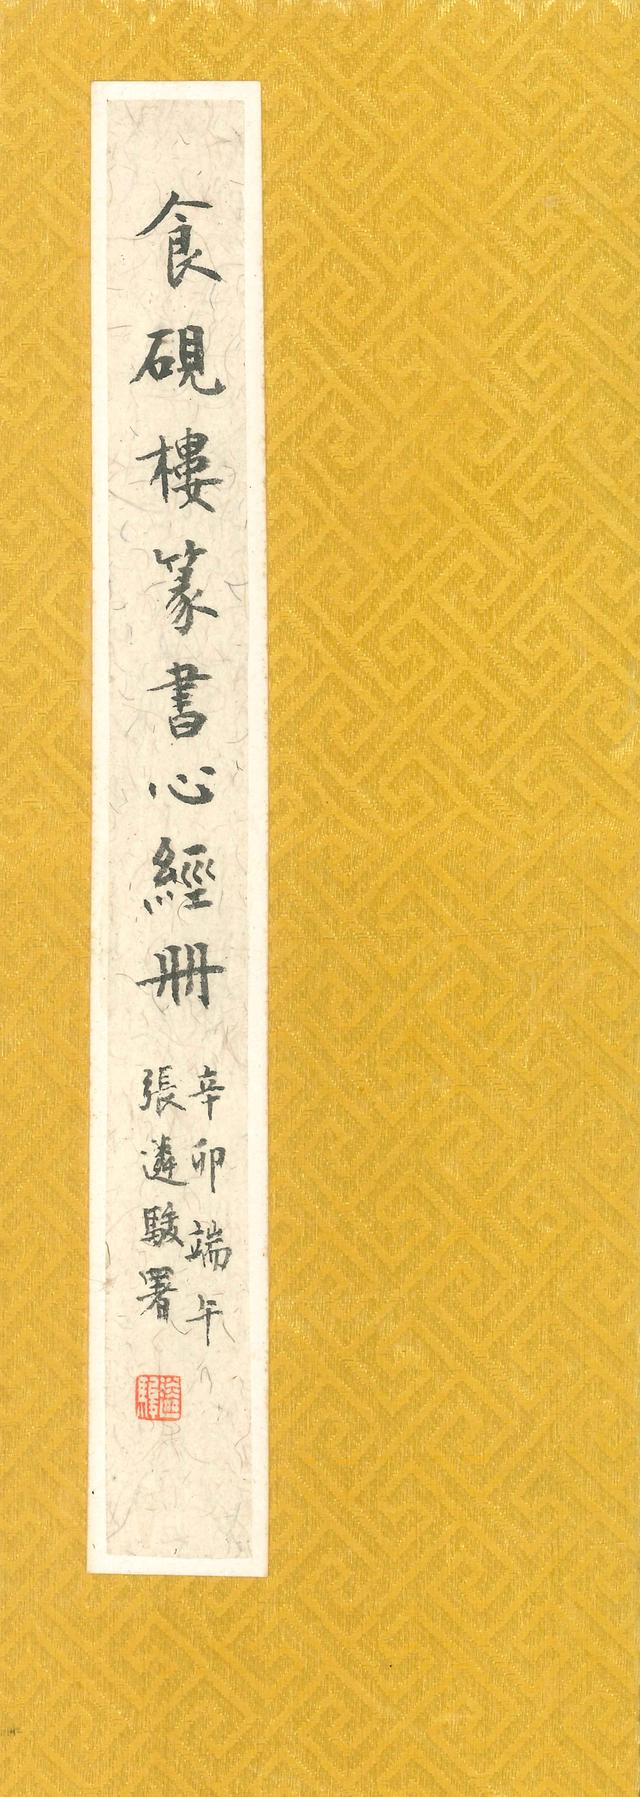 食硯樓篆書心經冊
辛卯端午
張遴駿署